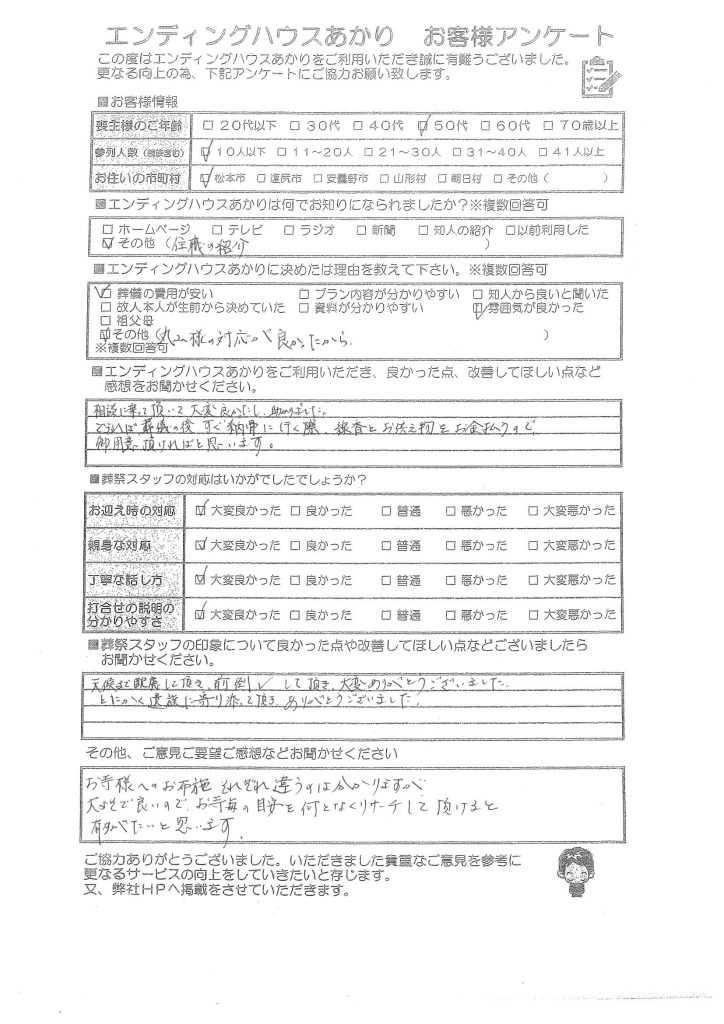 エンディングハウスあかり　お客様アンケート
この度はエンディングハウスあかりをご利用いただき誠に有難うございました。
更なる向上の為、下記アンケートにご協力お願い致します。
■お客様情報
喪主様のご年齢 □20代以下 □30代 □40代 ☑50代 □60代 □70歳以上
参列人数（親族含む） ☑10人以下 □11～20人 □21～30人 □31～40人 □41人以上
お住いの市町村 ☑松本市 □塩尻市 □安曇野市 □山形村 □朝日村 □その他（　　　）
■エンディングハウスあかりは何でお知りになられましたか？※複数回答可
□ホームページ □テレビ □ラジオ □新聞 □知人の紹介 □以前利用した
☑その他（住職の紹介　　　）
■エンディングハウスあかりに決めたは理由を教えて下さい。※複数回答可
☑葬儀の費用が安い □プラン内容が分かりやすい □知人から良いと聞いた
□故人本人が生前から決めていた □資料が分かりやすい ☑雰囲気が良かった
□祖父母
☑その他（丸山様の対応が良かったから　　　）
※複数回答可
■エンディングハウスあかりをご利用いただき、良かった点、改善してほしい点など
感想をお聞かせください。
相談に乗って頂いて大変良かったし、助かりました。
できれば葬儀の後すぐ納骨に行く際、線香とお供え物をお金払うので、
御用意頂ければと思います。
■葬祭スタッフの対応はいかがでしたでしょうか？
お迎え時の対応 ☑大変良かった □良かった □普通 □悪かった □大変悪かった
親身な対応 ☑大変良かった □良かった □普通 □悪かった □大変悪かった
丁寧な話し方 ☑大変良かった □良かった □普通 □悪かった □大変悪かった
打合せの説明の
分かりやすさ ☑大変良かった □良かった □普通 □悪かった □大変悪かった
■葬祭スタッフの印象について良かった点や改善してほしい点などございましたら
お聞かせください。
天候まで配慮して頂き、前倒しして頂き、大変ありがとうございました。
とにかく遺族に寄り添って頂き、ありがとうございました。
その他、ご意見ご要望ご感想などお聞かせください
お寺様へのお布施それぞれ違うのは分かりますが
大よそで良いので、お寺毎の目安を何となくリサーチして頂けると
有難たいと思います。
ご協力ありがとうございました。いただきました貴重なご意見を参考に
更なるサービスの向上をしていきたいと存じます。
又、弊社HPへ掲載をさせていただきます。